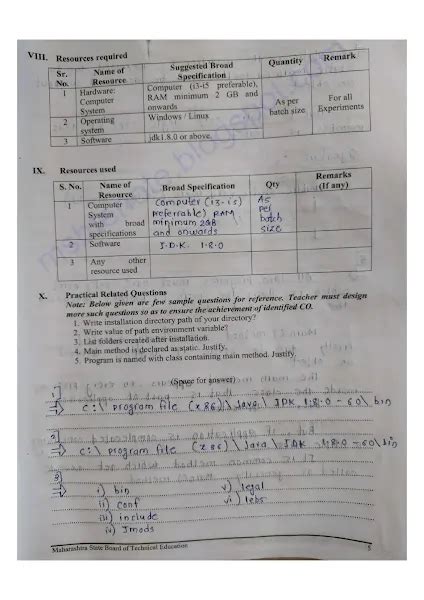 VIII. Resources required
Sr. No. Name of Resource Suggested Broad Specification Quantity Remark
1 Hardware: Computer System Computer (i3-i5 preferable), RAM minimum 2 GB and onwards As per batch size For all Experiments
2 Operating system Windows / Linux
3 Software jdk1.8.0 or above.
IX. Resources used
S. No. Name of Resource Broad Specification Qty Remarks (If any)
1 Computer System with broad specifications Computer (i3-i5) preferrable) RAM minimum 2GB and onwards As per batch size
2 Software J.D.K. 1.8.0
3 Any other resource used
X. Practical Related Questions
Note: Below given are few sample questions for reference. Teacher must design
more such questions so as to ensure the achievement of identified CO.
1. Write installation directory path of your directory?
2. Write value of path environment variable?
3. List folders created after installation.
4. Main method is declared as static. Justify.
5. Program is named with class containing main method. Justify.
(Space for answer)
1]
→ C:\ program file (x86)\ Java\ JDK 1.8.0 - 60\ bin
2]
→ C:\ program file (x86)\ Java\ JDK 1.8.0 - 60\ bin
3]
→ i) bin v) legal
ii) conf vi) lebs
iii) include
iv) Jmods
Maharashtra State Board of Technical Education 5